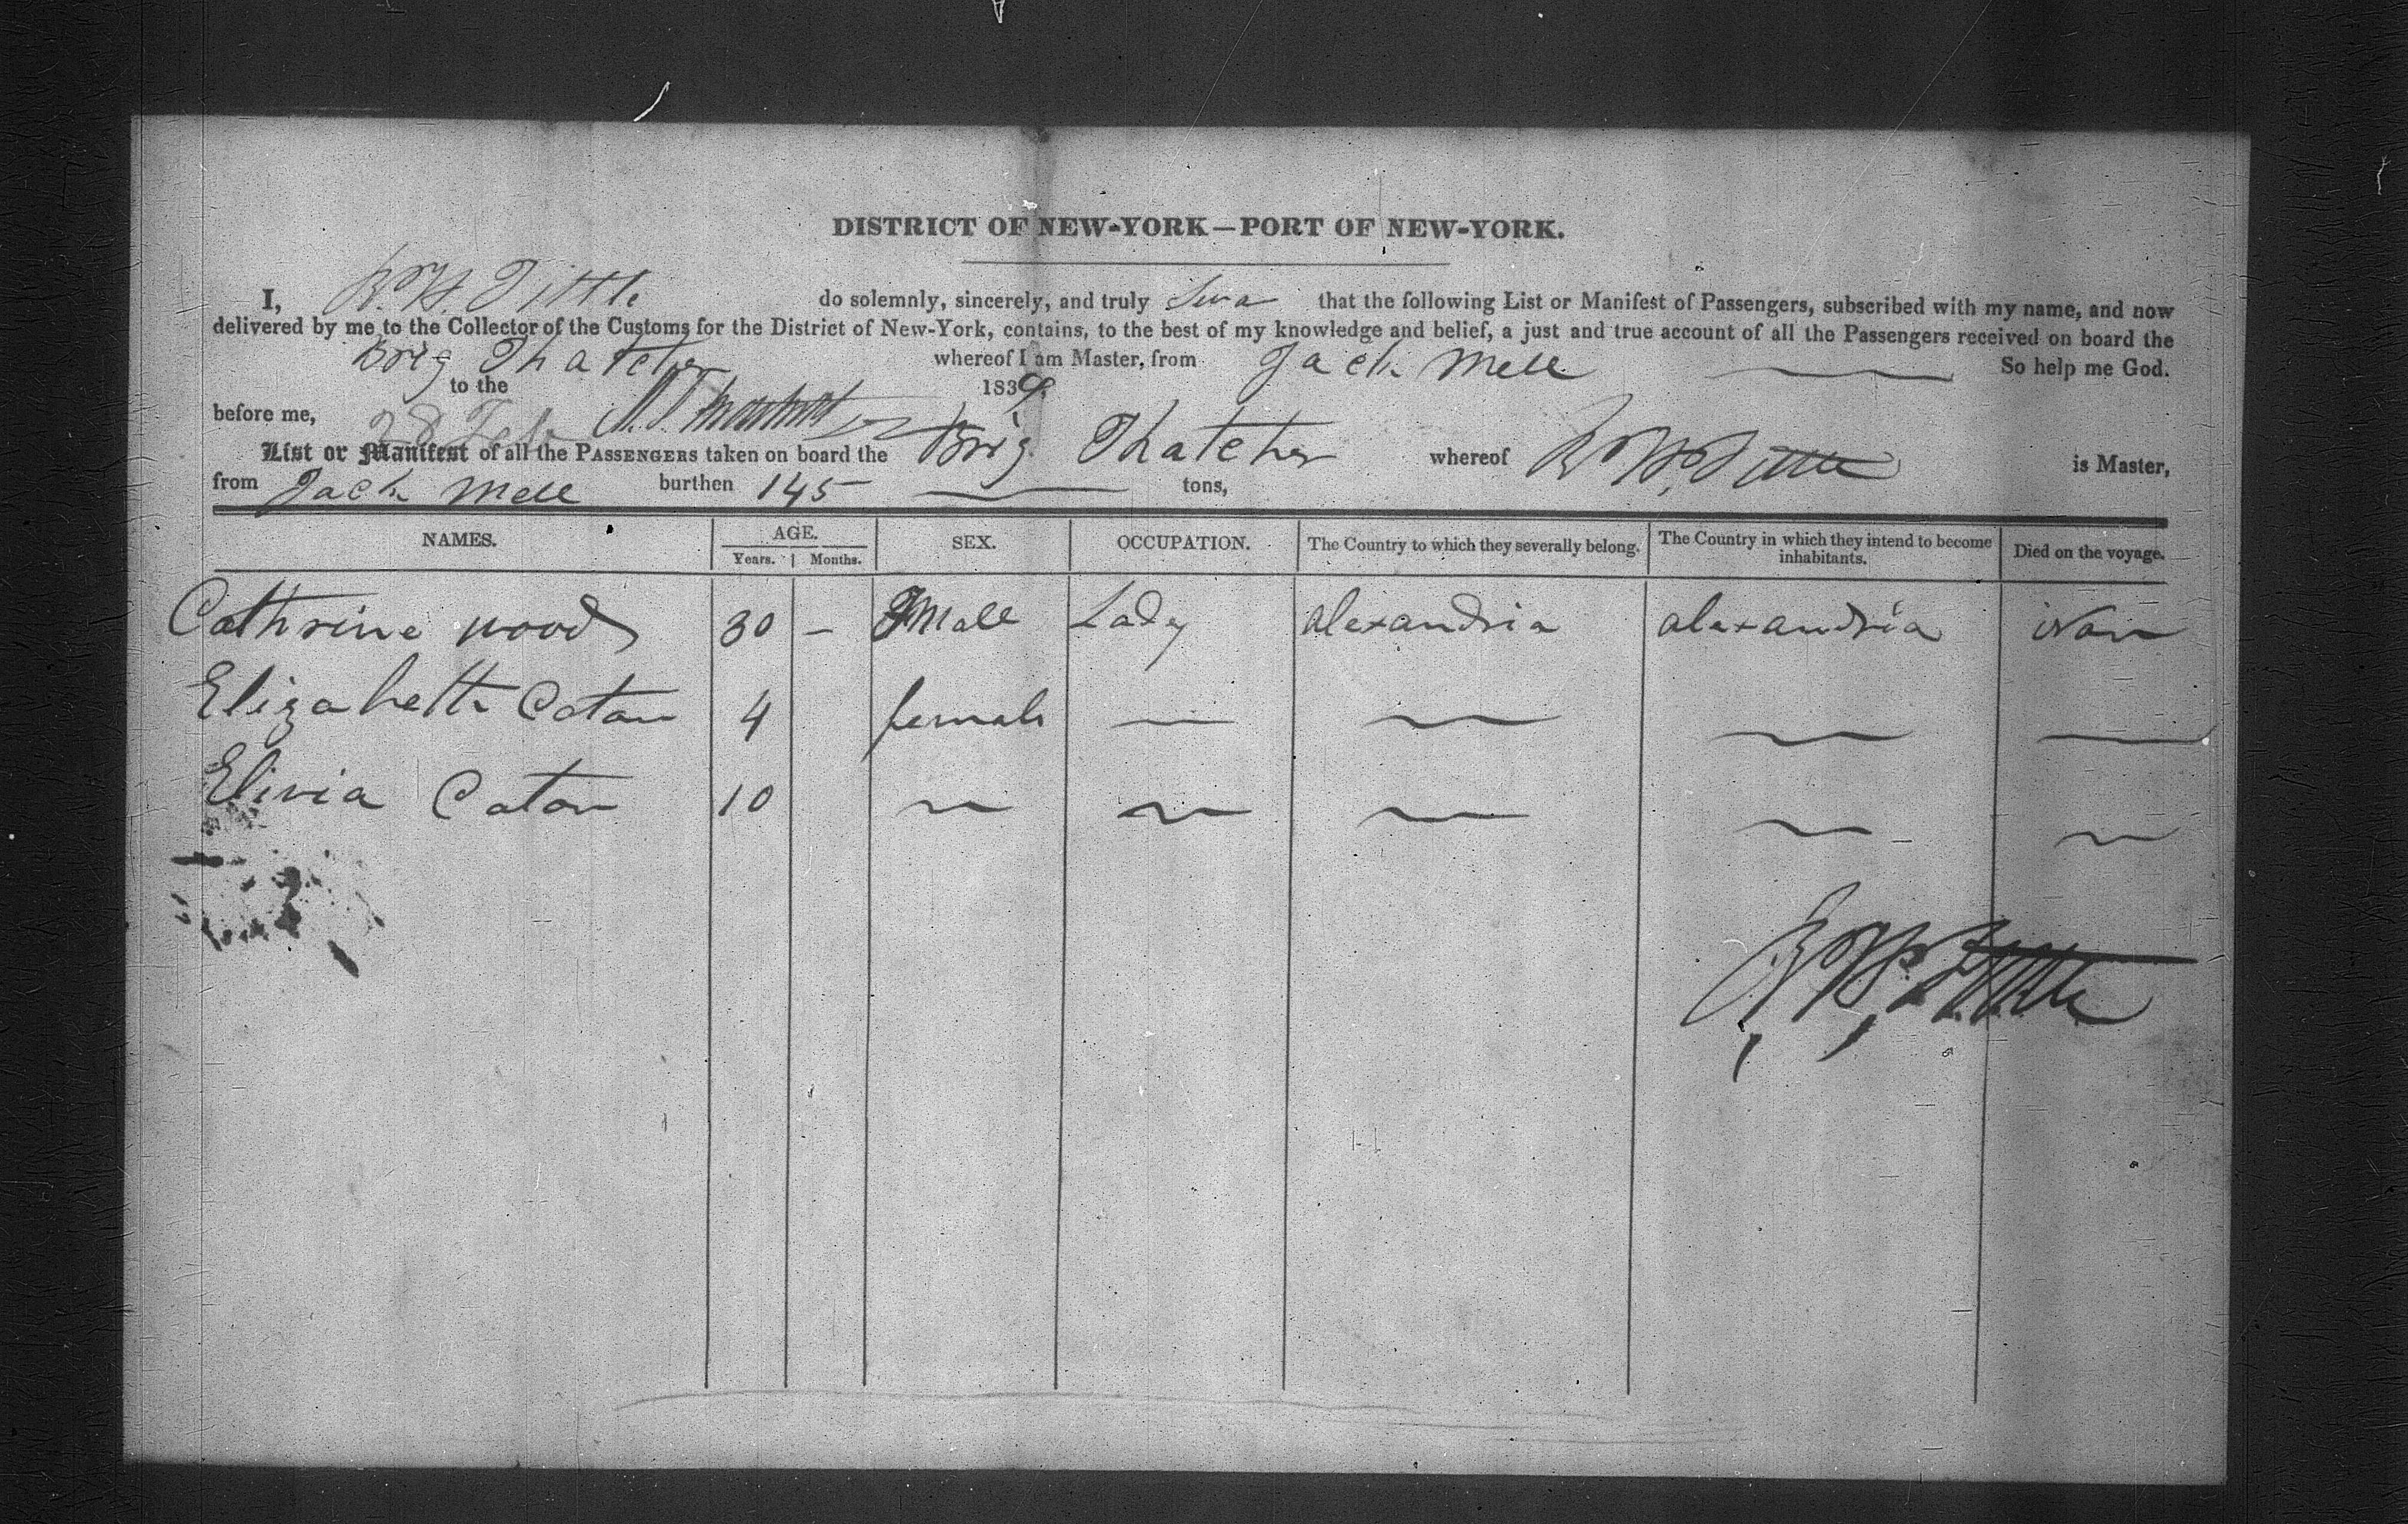 DISTRICT OF NEW-YORK—PORT OF NEW-YORK.
I, R. H. Tittle do solemnly, sincerely, and truly Swa that the following List or Manifest of Passengers, subscribed with my name, and now
delivered by me to the Collector of the Customs for the District of New-York, contains, to the best of my knowledge and belief, a just and true account of all the Passengers received on board the
Brig Thatcher whereof I am Master, from Jack Mell So help me God.
to the 1839
before me,
List or Manifest of all the PASSENGERS taken on board the Brig Thatcher whereof R. H. Tittle is Master,
from Jack Mell burthen 145 tons,
NAMES. AGE. SEX. OCCUPATION. The Country to which they severally belong. The Country in which they intend to become inhabitants. Died on the voyage.
Years. Months.
Cathrine wood 30 — Lady alexandria alexandria
Elizabeth Caton 4 female — — — —
Elivia Caton 10 — — — — —
R. H. Tittle